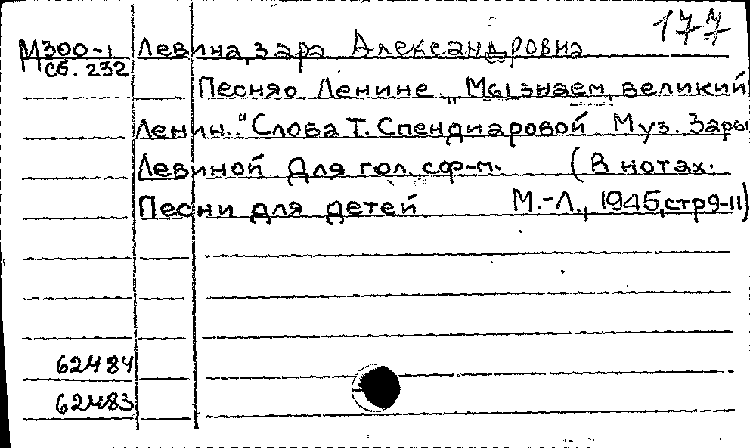 177
М300-1 Левина, Зара Александровна
Сб. 232
Песня о Ленине „Мы знаем, великий
Ленин." Слова Т. Спендиаровой Муз. Зары
Левиной Для гол. с ф-п. (В нотах:
Песни для детей М.-Л., 1945, стр 9-11)
62484
62483